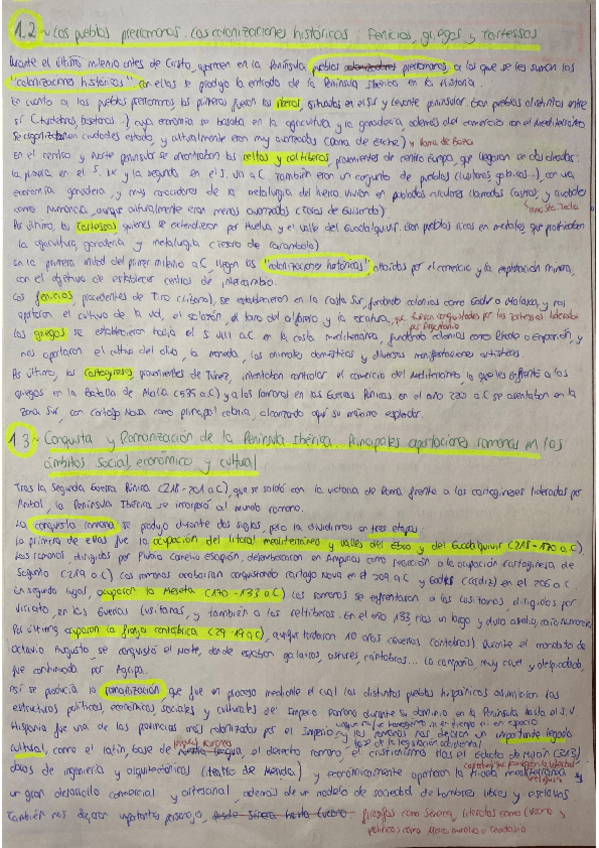 1.2 ~ Los pueblos prerromanos. Las colonizaciones históricos: Fenicios, griegos y Tartessos
Durante el último milenio antes de Cristo, aparecen en la Península pueblos colonizadores prerromanos, a los que se les suman las
"colonizaciones históricas". Con ellos se produjo la entrada de la Península Ibérica en la Historia.
En cuanto a los pueblos prerromanos, los primeros fueron los íberos, situados en el Sur y Levante peninsular. Son pueblos distintos entre
sí (turdetanos, bastetanos...) cuya economía se basaba en la agricultura y la ganadería, además del comercio con el Mediterráneo
Se organizaban en ciudades estado, y culturalmente eran muy avanzados (Dama de Elche) y Dama de Baza
En el centro y norte peninsular se encontraban los celtas y celtíberos, provenientes de centro Europa, que llegaron en dos oleadas:
la primera en el S. IX y la segunda en el S. VI a.C. También eran un conjunto de pueblos (lusitanos, galaicos...), con una
economía ganadera, y muy conocedores de la metalurgia del hierro. Vivían en poblados circulares llamados Castros, y ciudades
como Numancia, aunque culturalmente eran menos avanzados (Toros de Guisando)
Santa Tecla
Por último, los Tartessos quienes se extendieron por Huelva y el valle del Guadalquivir. Son pueblos ricos en metales, que practicaban
la agricultura, ganadería y metalurgia (tesoro de Carambolo)
En la primera mitad del primer milenio a.C, llegan las "colonizaciones históricas" atraídas por el comercio y la explotación minera,
con el objetivo de establecer centros de intercambio.
Los fenicios, procedentes de Tiro (Líbano), se establecieron en la costa Sur, fundando colonias como Gadir o Malaka, y nos
aportaron el cultivo de la vid, el salazón, el torno del alfarero y la escritura, que fueron conquistados por los tartessos liderados
por Argantonio
Los griegos se establecieron hacia el S VIII a.C en la costa mediterránea, fundando colonias como Rhode o Emporion, y
nos aportaron el cultivo del olivo, la moneda, los animales domésticos y diversas manifestaciones artísticas.
Por último, los Cartagineses, provenientes de Túnez, intentaban controlar el comercio del Mediterráneo, lo que les enfrentó a los
griegos en la Batalla de Alalia (535 a.C) y a los romanos en las Guerras Púnicas. En el año 220 a.C se asentaban en la
zona Sur, con Cartago Nova como principal colonia, alcanzando aquí su máximo esplendor.
1.3 ~ Conquista y Romanización de la Península Ibérica. Principales aportaciones romanas en los
ámbitos social, económico y cultural
Tras la Segunda Guerra Púnica (218-201 a.C), que se saldó con la victoria de Roma frente a los cartagineses liderados por
Aníbal, la Península Ibérica se incorporó al mundo romano.
La conquista romana se produjo durante dos siglos, pero la dividiremos en tres etapas:
La primera de ellas fue la ocupación del litoral mediterráneo y valles del Ebro y del Guadalquivir (218-170 a.C).
Los romanos, dirigidos por Publio Cornelio Escipión, desembarcaron en Ampurias como reacción a la ocupación cartaginesa de
Sagunto (219 a.C). Los romanos acabarían conquistando Cartago Nova en el 209 a.C y Gades (Cádiz) en el 206 a.C
En segundo lugar, ocuparon la Meseta (170-133 a.C). Los romanos se enfrentaron a los lusitanos, dirigidos por
Viriato, en las Guerras Lusitanas, y también a los celtíberos. En el año 133, tras un largo y duro asedio, cayó Numancia
Por último, ocuparon la franja cantábrica (29-19 a.C), aunque tardaron 10 años (Guerras Cántabras). Durante el mandato de
Octavio Augusto se conquistó el Norte, donde estaban galaicos, astures, cántabros... La campaña, muy cruel y despiadada,
fue continuada por Agripa.
Así se produciría la romanización, que fue un proceso mediante el cual los distintos pueblos hispánicos asimilaron las
estructuras políticas, económicas, sociales y culturales del Imperio Romano durante su dominio en la Península hasta el S.V.
aunque no fue homogéneo ni en tiempo ni en espacio
Hispania fue una de las provincias más colonizadas por el Imperio, y los romanos nos dejaron un importante legado
cultural, como el latín, base de nuestra lengua, el derecho romano, el cristianismo tras el Edicto de Milán (313),
base de la legislación occidental
obras de ingeniería y arquitectónicas (teatro de Mérida) y económicamente aportaron la triada mediterránea y
un gran desarrollo comercial y artesanal, además de un modelo de sociedad de hombres libres y esclavos
También nos dejaron importantes personajes, desde Séneca hasta Lucano - filósofos como Séneca, literatos como Lucano y
políticos como Marco Aurelio o Teodosio